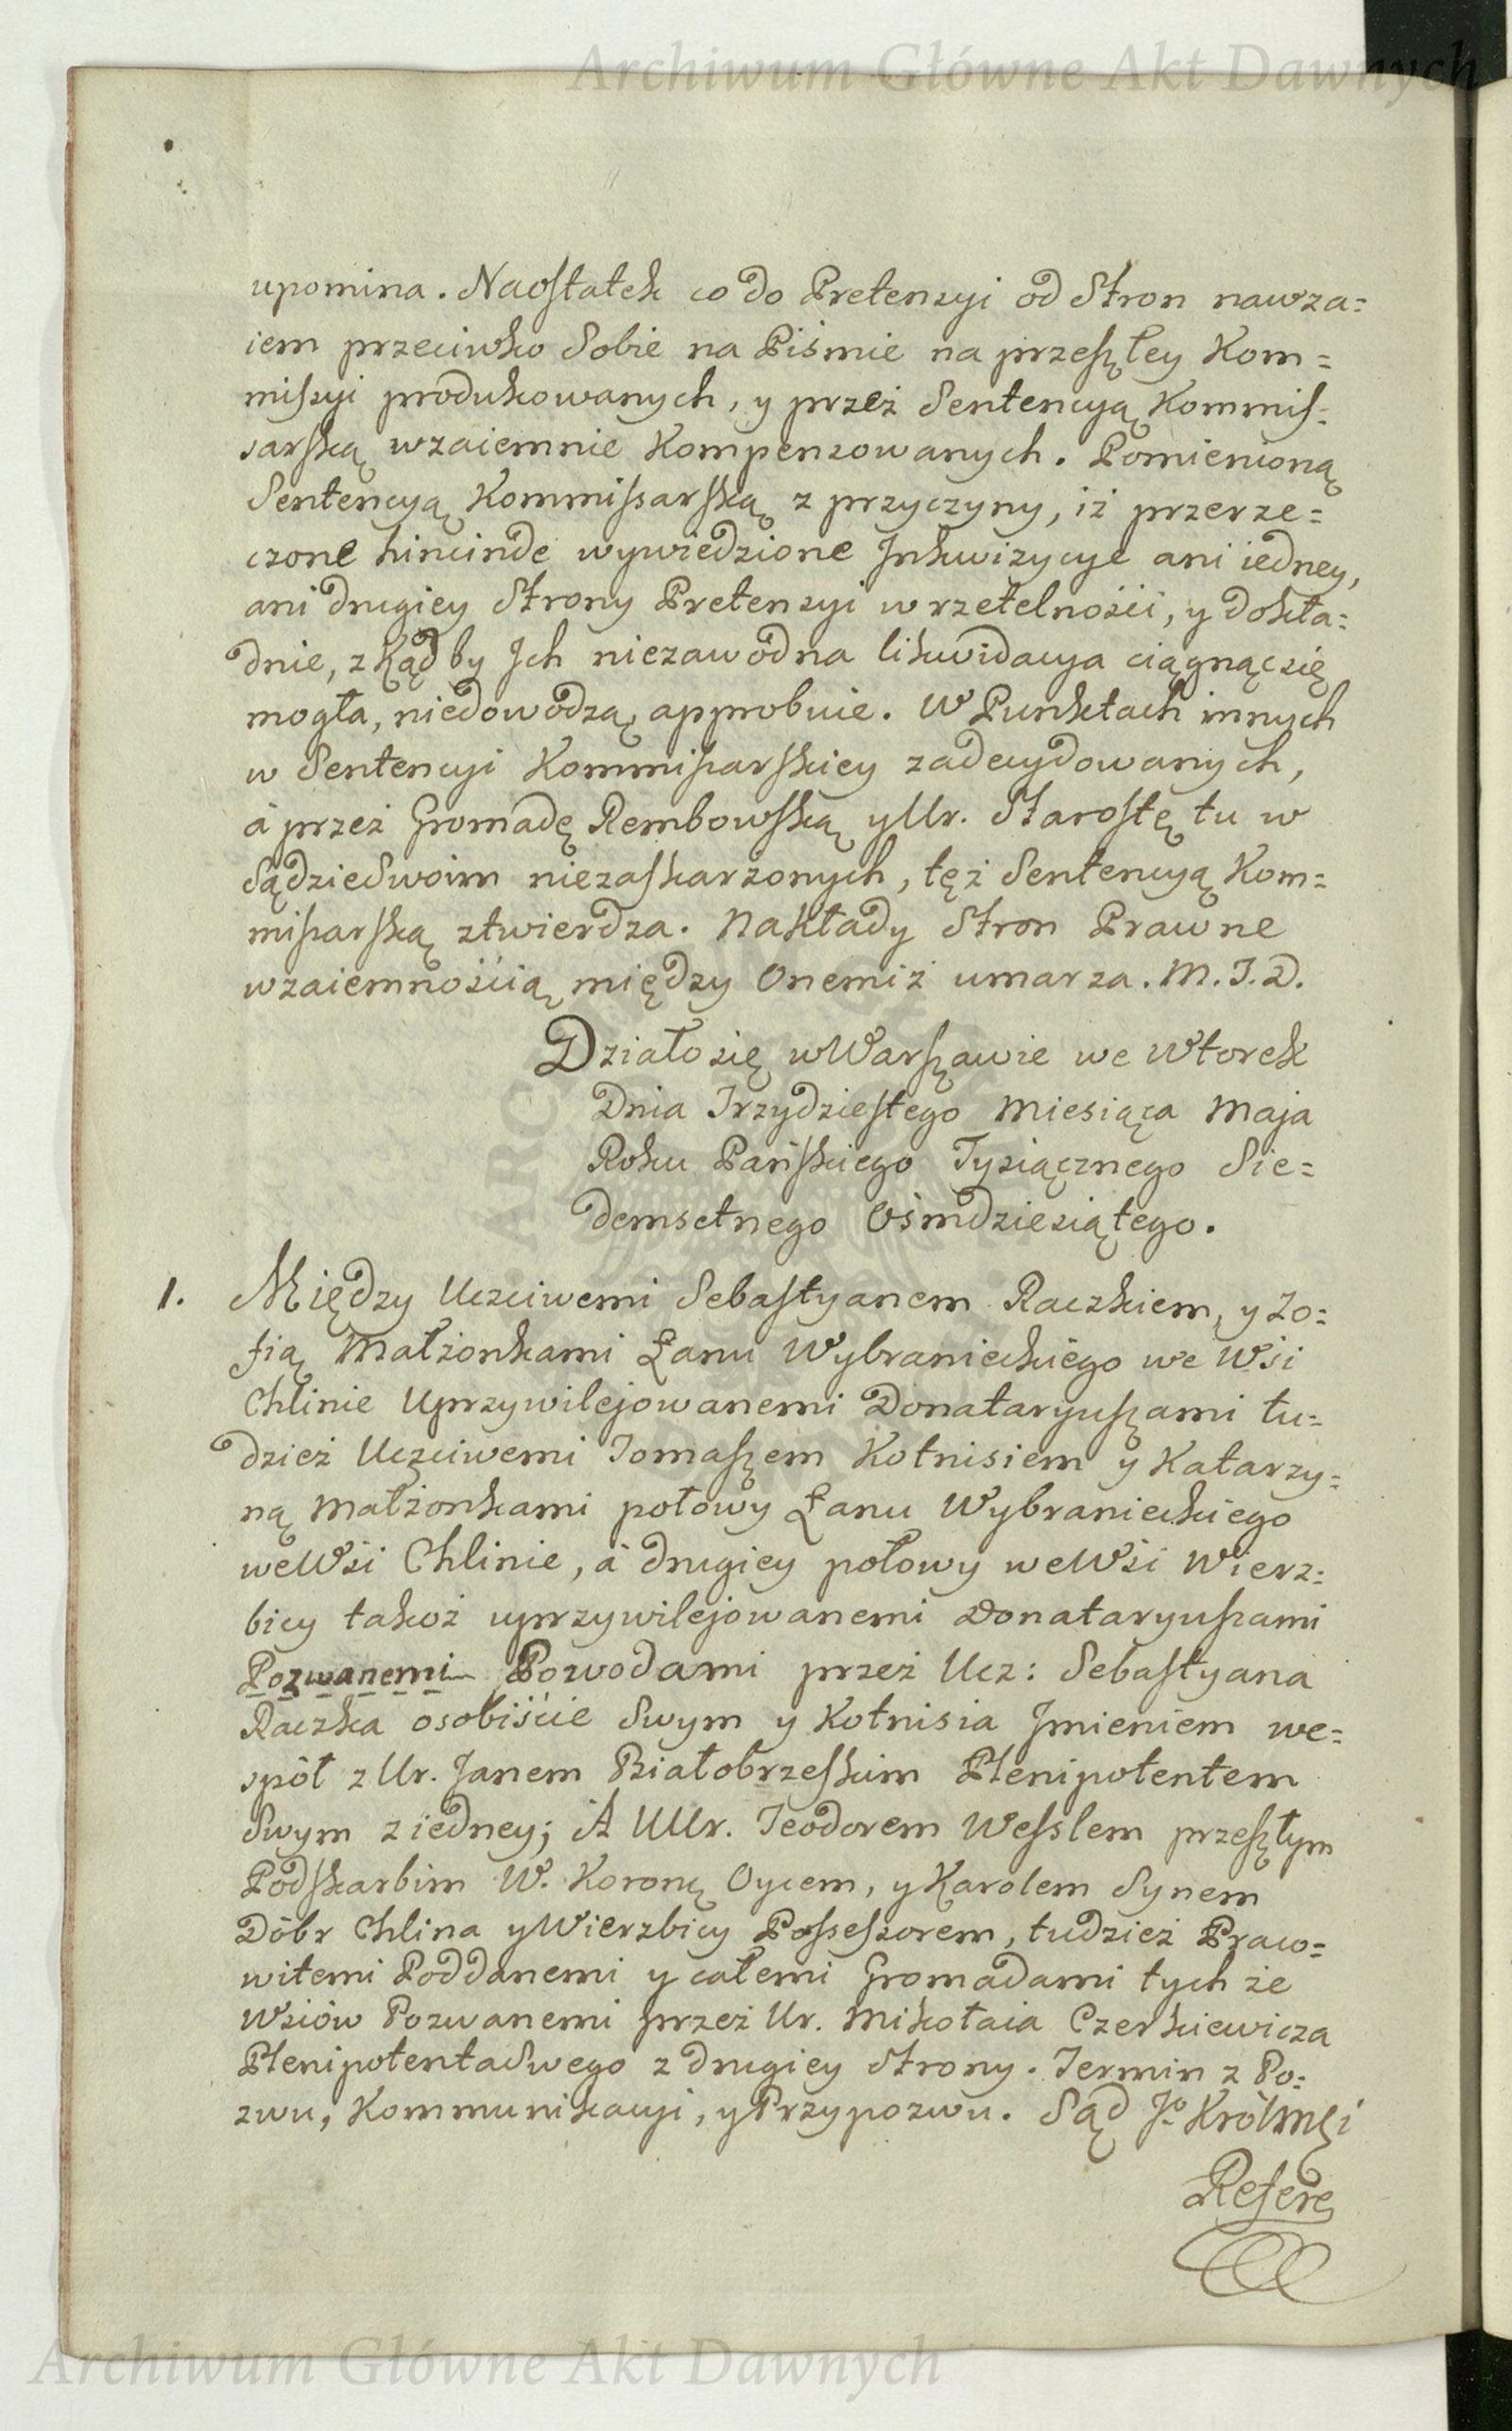 Archiwum Główne Akt Dawnych
upomina. Naostatek co do Pretensyi od Stron nawza=
iem przeciwko Sobie na Piśmie na przeszłey Kom=
missyi produkowanych, y przez Sentencyą Kommis=
sarską wzaiemnie Kompensowanych. Pomienioną
Sentencyą Kommissarską z przyczyny, iż przerze=
czone hincinde wywiedzione Inkwizycye ani iedney,
ani drugiey Strony Pretensyi w rzetelności, y dokła=
dnie, zkądby Ich niezawodna likwidacya ciągnąc się
mogła, niedowodzą, approbuie. W Punktach innych
w Sentencyi Kommissarskiey zadecydowanych,
à przez Gromadę Rembowską y Ur. Starostę tu w
Sądzie Swoim niezaskarzonych, tęż Sentencyą Kom=
missarską ztwierdza. Nakłady Stron Prawne
wzaiemnością między Onemiż umarza. M. I. D.
Działo się w Warszawie we Wtorek
Dnia Trzydziestego Miesiąca Maja
Roku Pańskiego Tysiącznego Sie=
demsetnego Ośmdziesiątego.
1. Między Uczciwemi Sebastyanem Raczkiem, y Zo=
fią Małżonkami Łanu Wybranieckiego we Wsi
Chlinie Uprzywilejowanemi Donataryuszami tu=
dzież Uczciwemi Tomaszem Kotnisiem y Katarzy=
ną Małżonkami połowy Łanu Wybranieckiego
we Wśi Chlinie, à drugiey połowy we Wśi Wierz=
bicy takoż uprzywilejowanemi Donataryuszami
Pozwanemi Powodami przez Ucz: Sebastyana
Raczka osobiście Swym y Kotnisia Imieniem we=
spół z Ur. Janem Białobrzeskim Plenipotentem
Swym z iedney; A UUr. Teodorem Wesslem przeszłym
Podskarbim W. Koronę Oycem, y Karolem Synem
Dóbr Chlina y Wierzbicy Possessorem, tudzież Praco=
witemi Poddanemi y całemi Gromadami tychże
Wsiów Pozwanemi przez Ur. Mikołaia Czerkiewicza
Plenipotenta Swego z drugiey Strony. Termin z Po=
zwu, Kommunikacyi, y Przypozwu. Sąd Jo KrólMści
Refere
Archiwum Główne Akt Dawnych